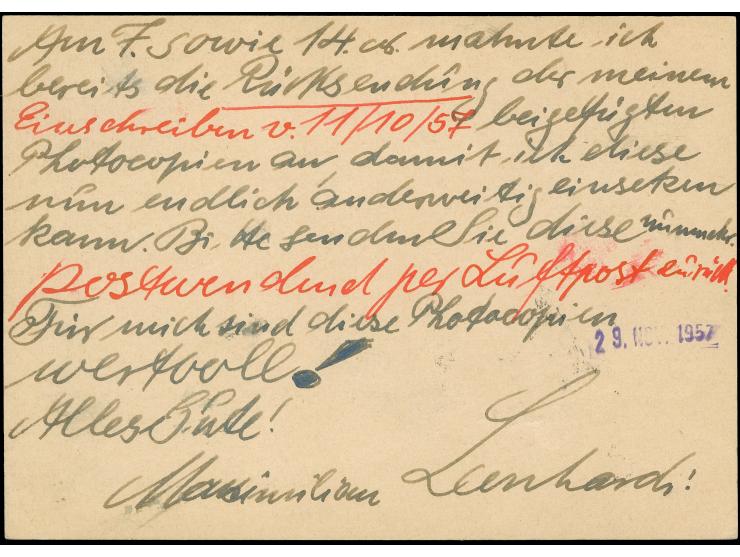 Am 7. sowie 14. cr. mahnte ich
bereits die Rücksendung der meinem
Einschreiben v. 11/10/57 beigefügten
Photocopien an, damit ich diese
nun endlich anderweitig einsetzen
kann. Bitte senden Sie diese nunmehr
postwendend per Luftpost zurück!
Für mich sind diese Photocopien
wertvoll!
29. NOV. 1957
Alles Gute!
Maximilian Leonhardi!